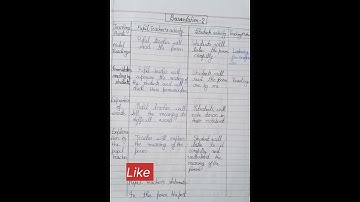 Presentation-2
Teaching Point
Pupil Teacher's activity
Students activity
Model Reading
Pupil teacher will read the poem
Students will listen the poem carefully
reading by students
Pupil teacher will
the reading of the students and will check their pronunciation
Students will read the poem one by one
Explanation of words
Pupil Teacher will tell the meaning of difficult word
Students will note down in their notebook
Explanation by the pupil teacher
Teacher will explain the meaning of the poem
Student will listen to it carefully and understand the meaning of the poem
Like
Pupil teacher's statement
In the poem